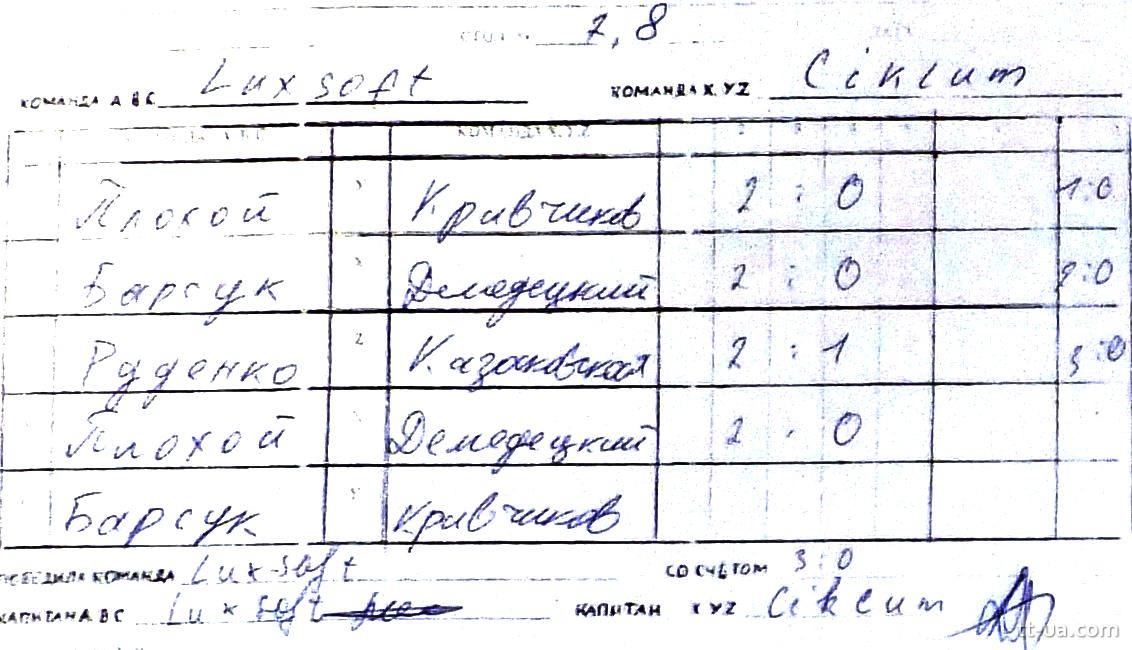 7, 8
КОМАНДА А В С Luxsoft КОМАНДА X.Y.Z Ciklum
КОМАНДА X.Y.Z
Плохой Кривчиков 2 : 0 1:0
Барсук Демедецкий 2 : 0 2:0
Руденко 2 Казаковская 2 : 1 3:0
Плохой Демедецкий 2 . 0
Барсук Кривчиков
ПОБЕДИЛА КОМАНДА Lux-soft СО СЧЕТОМ 3:0
КАПИТАН А В С Luxsoft КАПИТАН X Y Z Ciklum
tt-ua.com